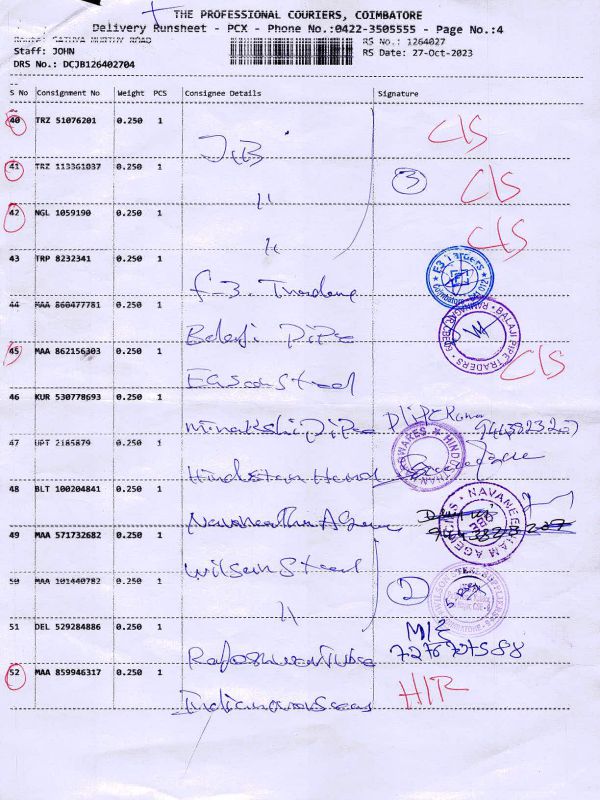 THE PROFESSIONAL COURIERS, COIMBATORE
Delivery Runsheet - PCX - Phone No.:0422-3505555 - Page No.:4
Route: SATHYA MURTHY ROAD RS No.: 1264027
Staff: JOHN RS Date: 27-Oct-2023
DRS No.: DCJB126402704
S No Consignment No Weight PCS Consignee Details Signature
40 TRZ 51076201 0.250 1 JHB C/S
41 TRZ 113361037 0.250 1 〃 3 C/S
42 NGL 1059190 0.250 1 〃 C/S
43 TRP 8232341 0.250 1 F3. Traders
44 MAA 860477781 0.250 1 Balaji Pipe BALAJI PIPE TRADERS
45 MAA 862156303 0.250 1 Steel C/S
46 KUR 530778693 0.250 1 Minakshi Pipe
47 UPT 2185879 0.250 1 Hindustan Hard
48 BLT 100204841 0.250 1 Navaneetham Agenc
49 MAA 571732682 0.250 1 Wilson Steel
50 MAA 101440782 0.250 1 〃 2
51 DEL 529284886 0.250 1 Rajeshwari Tube
52 MAA 859946317 0.250 1 Indian overseas H/R